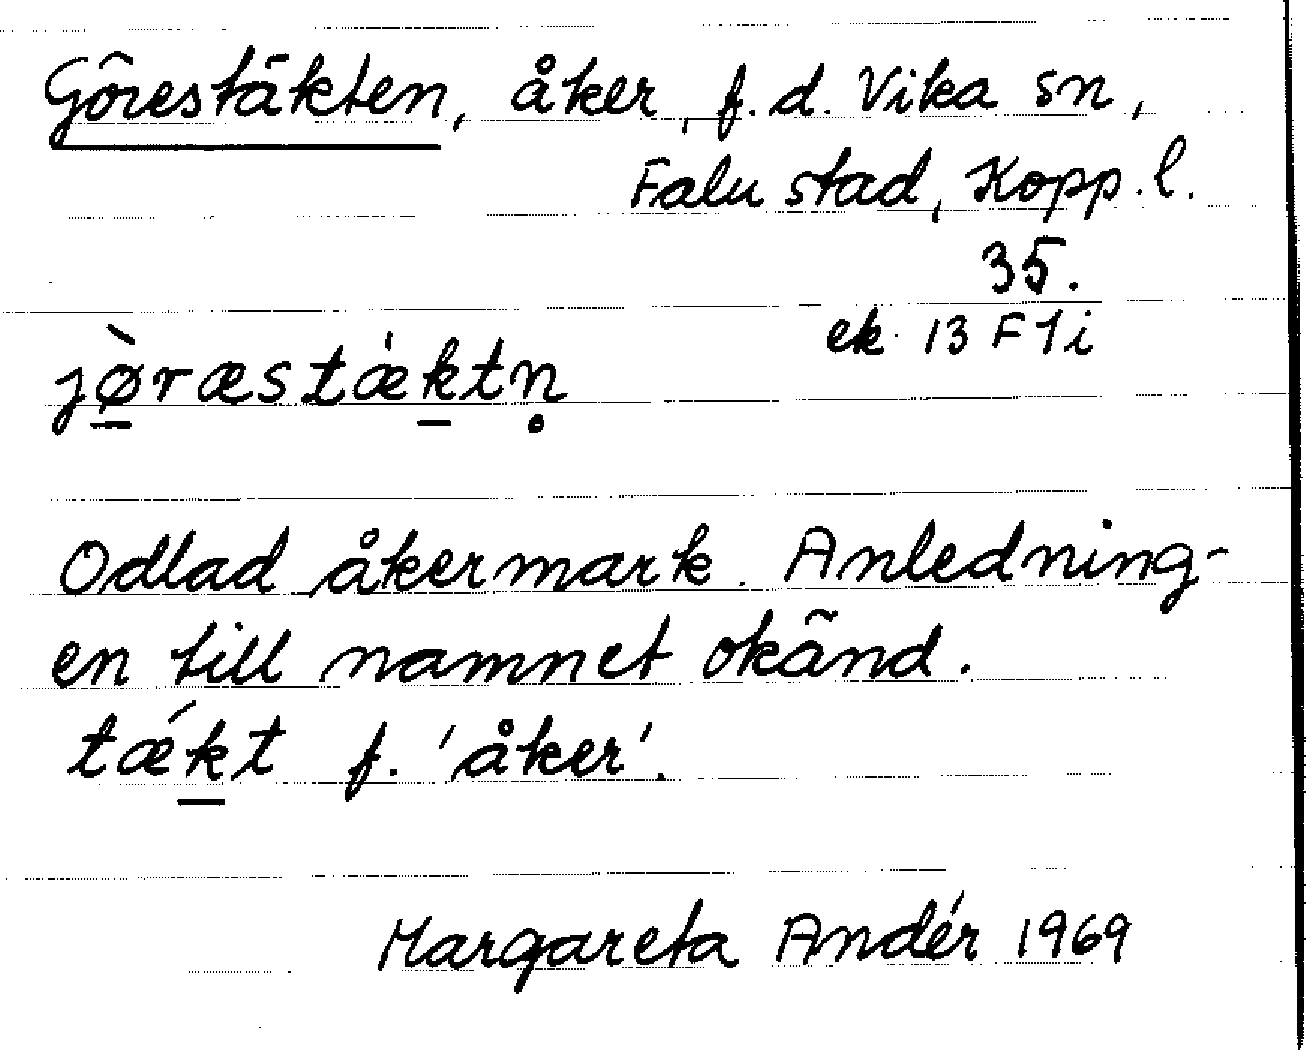 Görestäkten, åker, f.d. Vika sn,
Falu stad, Kopp.l.
35.
ek 13 F 1 i
jø̠̀ræstæ̍k̠tn̥
Odlad åkermark. Anledning-
en till namnet okänd.
tǽk̠t f. 'åker'.
Margareta Andér 1969